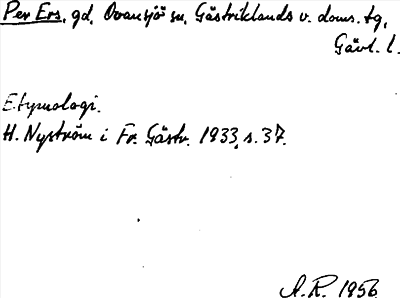 Per Ers, gd, Ovansjö sn, Gästriklands v. doms. tg,
Gävl. l.
Etymologi.
H. Nyström i Fr. Gästr. 1933, s. 37.
A.R. 1956